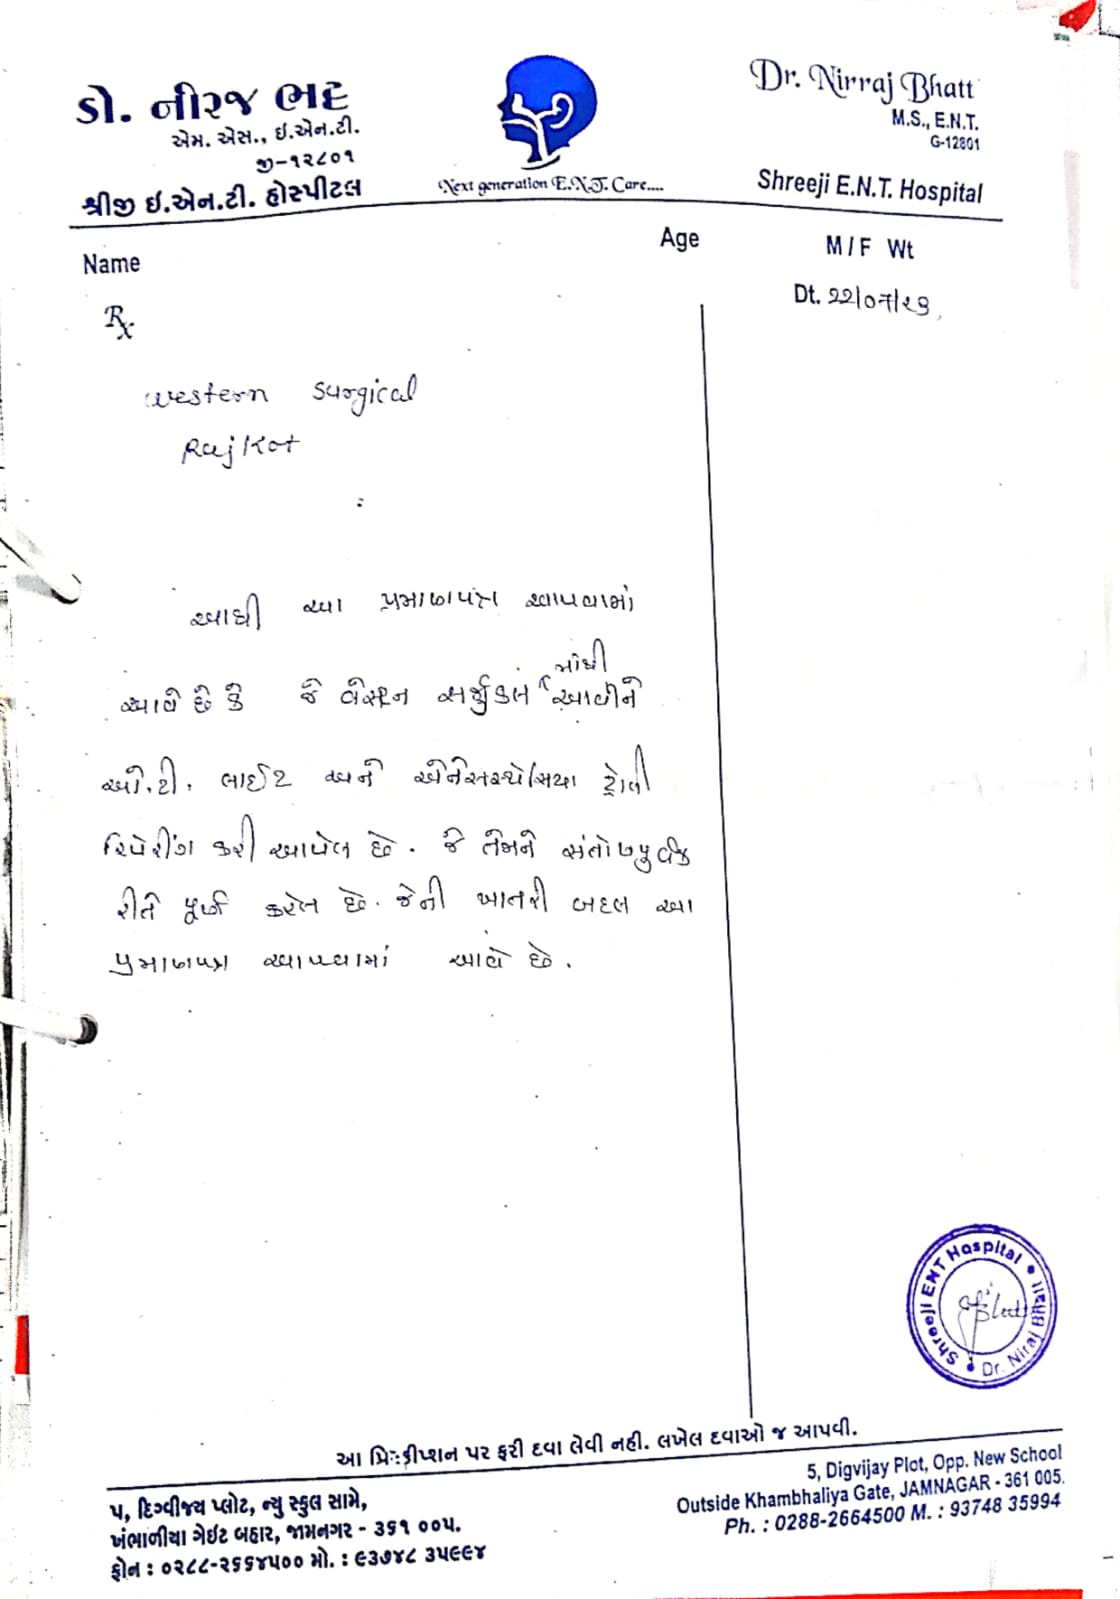 ડો. નીરજ ભટ્ટ
એમ. એસ., ઈ.એન.ટી.
જી-૧૨૮૦૧
શ્રીજી ઈ.એન.ટી. હોસ્પીટલ
Next generation E.N.T. Care....
Dr. Nirraj Bhatt
M.S., E.N.T.
G-12801
Shreeji E.N.T. Hospital
Name
Age
M / F Wt
Dt. ૨૨/૦૧/૨૩
Rx
western surgical
Rajkot
આથી આ પ્રમાણપત્ર આપવામાં
આવે છે કે જે વેસ્ટન સર્જીકલ માંથી આવીને
ઓ.ટી. લાઈટ અને એનેસથ્યેસિયા ટ્રોલી
રિપેરીંગ કરી આપેલ છે. જે તેમને સંતોષપુર્વક
રીતે પૂર્ણ કરેલ છે. જેની ખાતરી બદલ આ
પ્રમાણપત્ર આપવામાં આવે છે.
Shreeji ENT Hospital
Dr. Niraj Bhatt
આ પ્રિસ્ક્રીપ્શન પર ફરી દવા લેવી નહી. લખેલ દવાઓ જ આપવી.
૫, દિગ્વીજય પ્લોટ, ન્યુ સ્કુલ સામે,
ખંભાળીયા ગેઈટ બહાર, જામનગર - ૩૬૧ ૦૦૫.
ફોન : ૦૨૮૮-૨૬૬૪૫૦૦ મો. : ૯૩૭૪૮ ૩૫૯૯૪
5, Digvijay Plot, Opp. New School
Outside Khambhaliya Gate, JAMNAGAR - 361 005.
Ph. : 0288-2664500 M. : 93748 35994